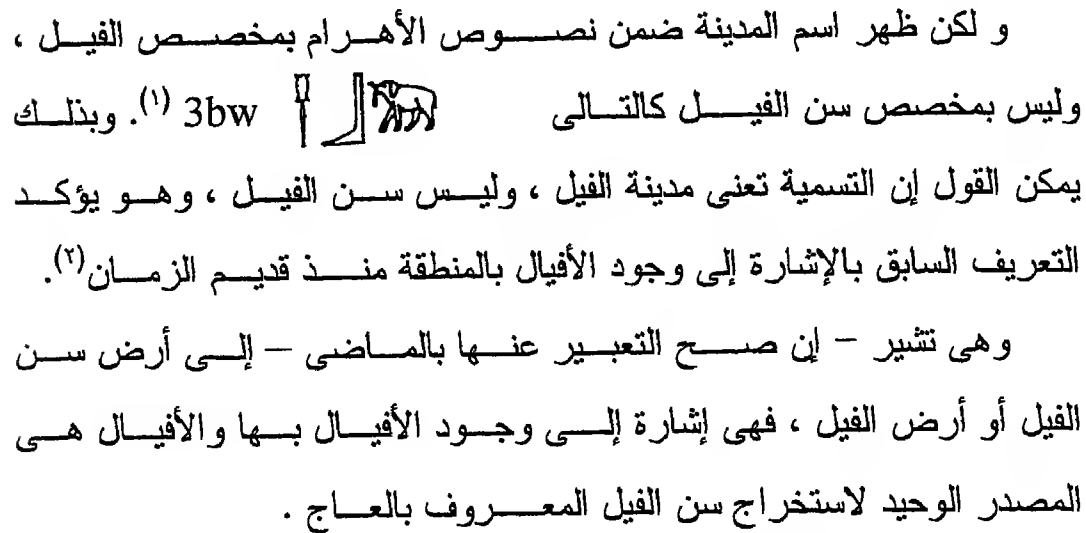 و لكن ظهر اسم المدينة ضمن نصوص الأهرام بمخصص الفيل ،
وليس بمخصص سن الفيل كالتالى 𓍋𓃀𓃰 3bw (١). وبذلك
يمكن القول إن التسمية تعنى مدينة الفيل ، وليس سن الفيل ، وهو يؤكد
التعريف السابق بالإشارة إلى وجود الأفيال بالمنطقة منذ قديم الزمان(٢).
وهى تشير – إن صح التعبير عنها بالماضى – إلى أرض سن
الفيل أو أرض الفيل ، فهى إشارة إلى وجود الأفيال بها والأفيال هى
المصدر الوحيد لاستخراج سن الفيل المعروف بالعاج .